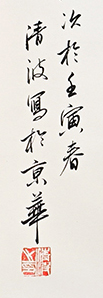 次於壬寅春
清波寫於京華